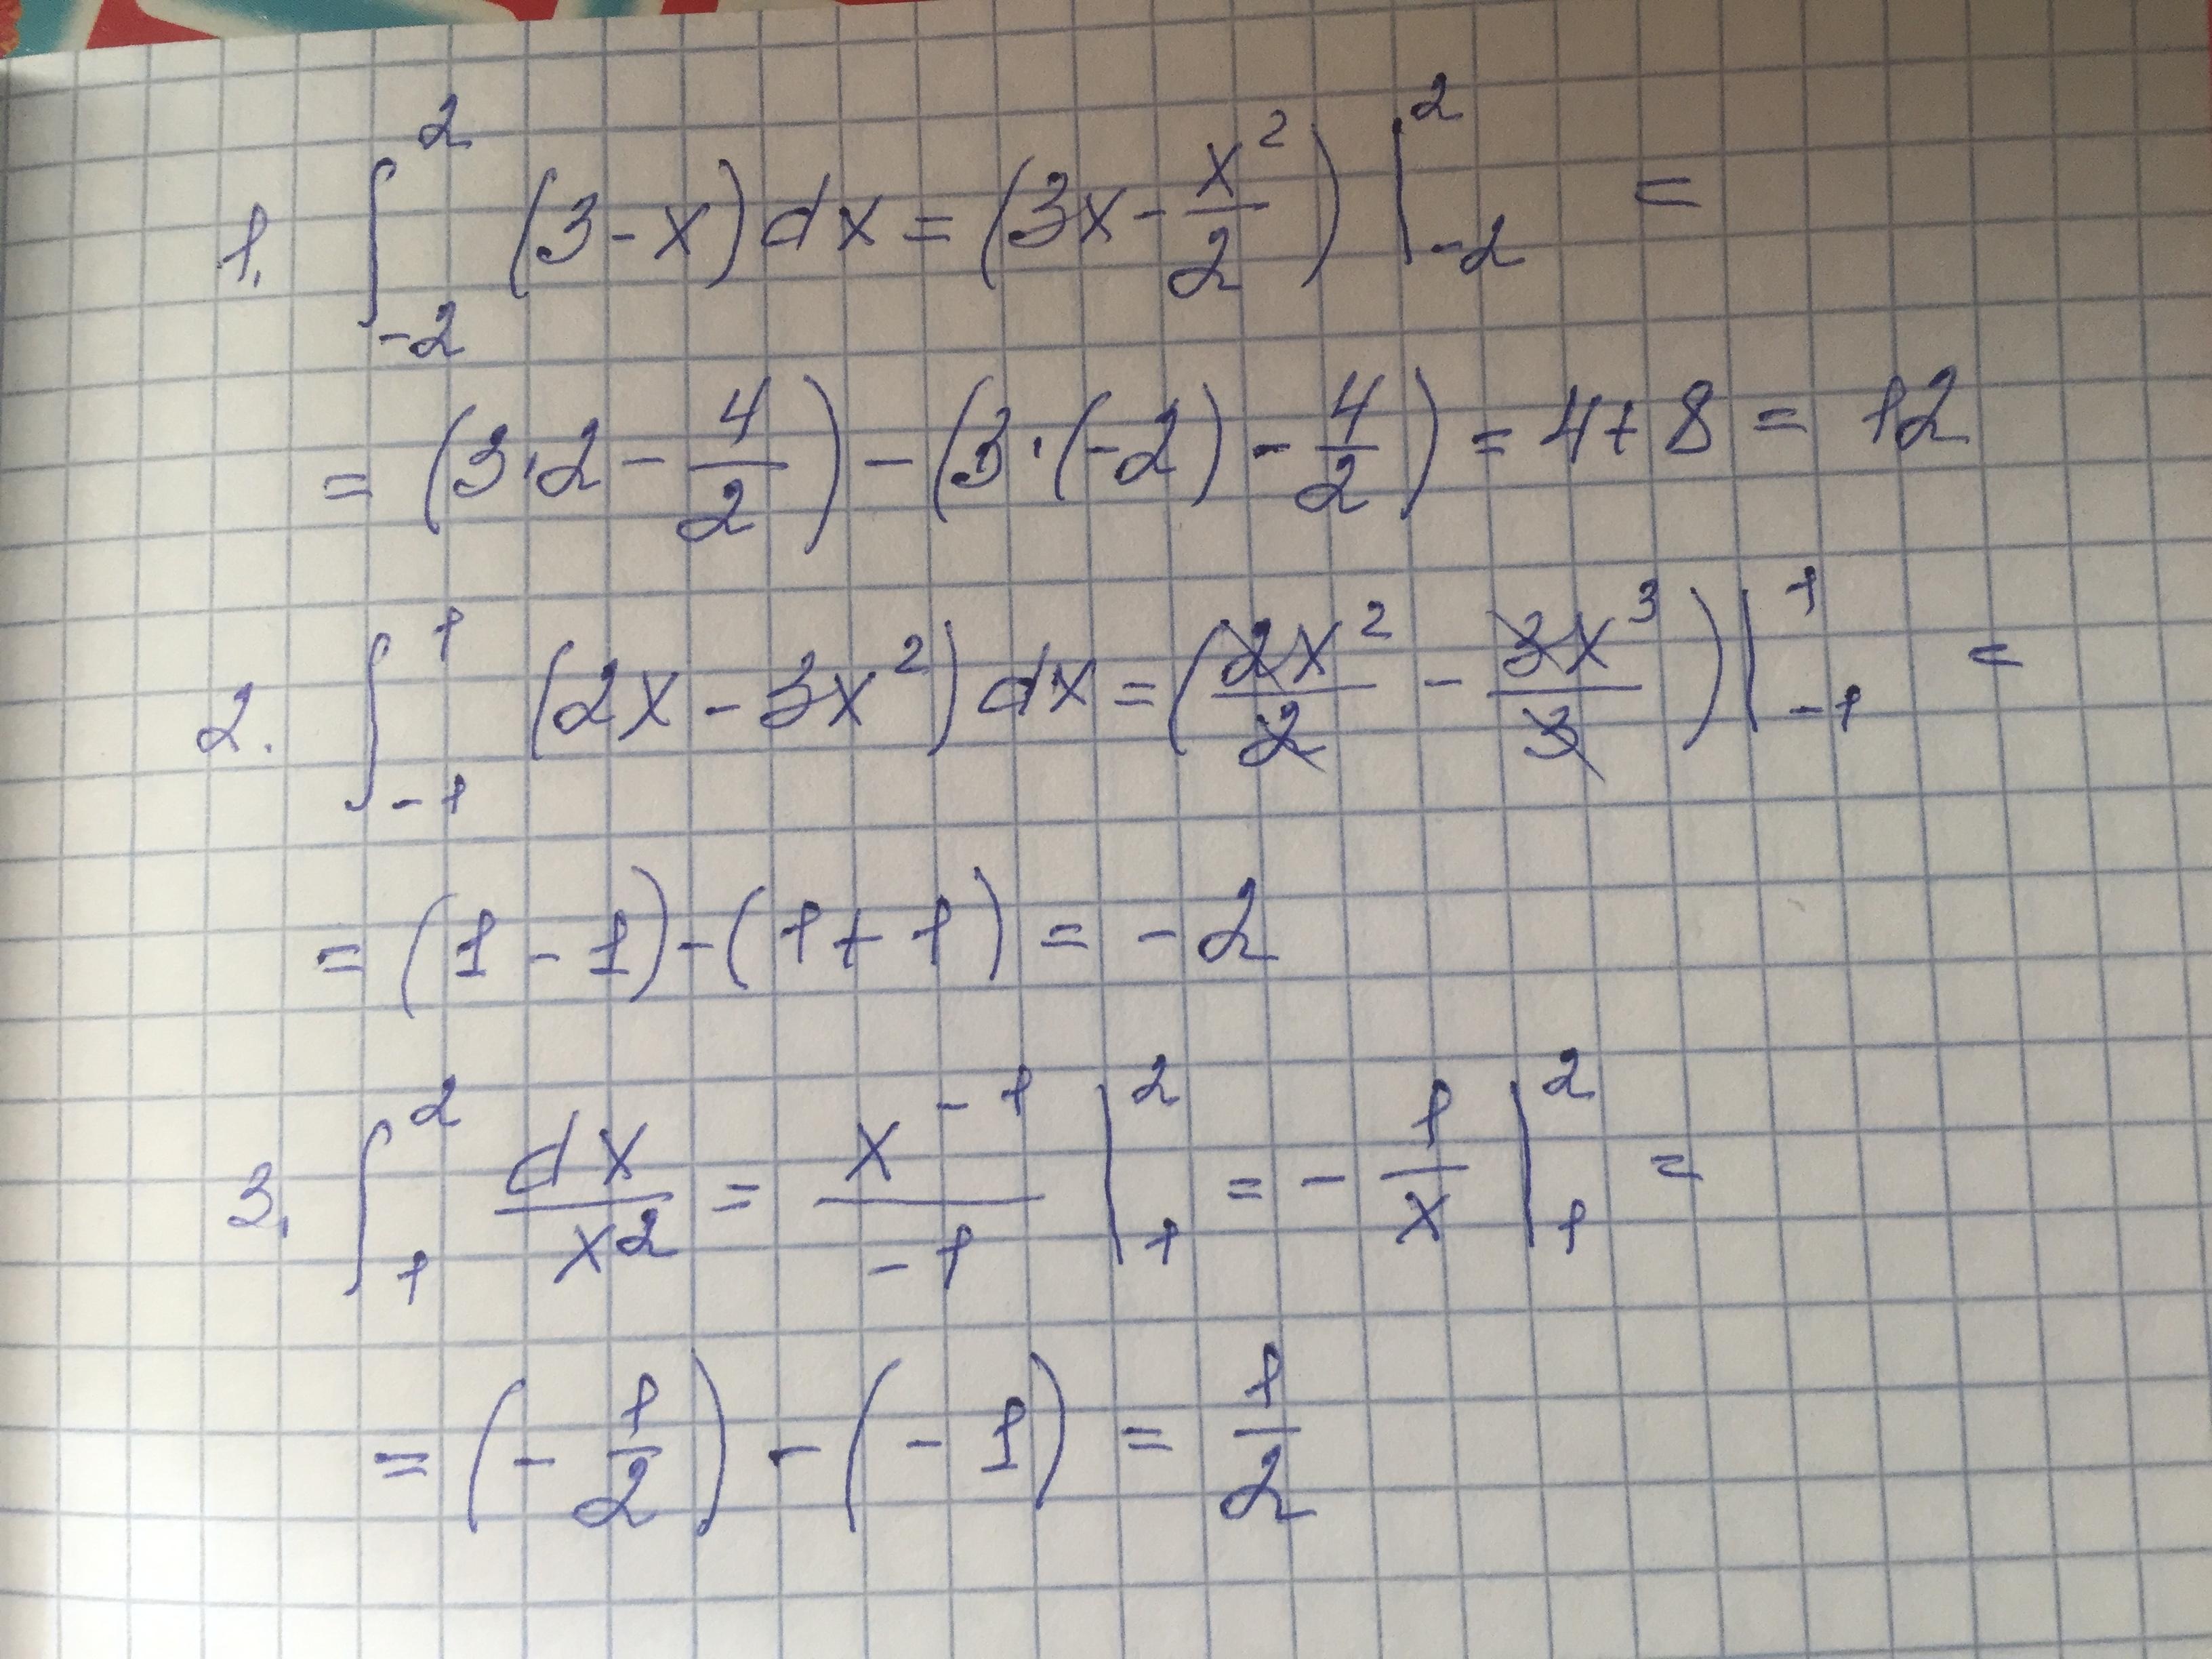 1. ∫₋₂² (3-x)dx = (3x - x²/2) |₋₂² =
= (3·2 - 4/2) - (3·(-2) - 4/2) = 4+8 = 12
2. ∫₋₁¹ (2x - 3x²)dx = (2x²/2 - 3x³/3) |₋₁¹ =
= (1-1)-(1+1) = -2
3. ∫₁² dx/x² = x⁻¹/-1 |₁² = -1/x |₁² =
= (-1/2) - (-1) = 1/2